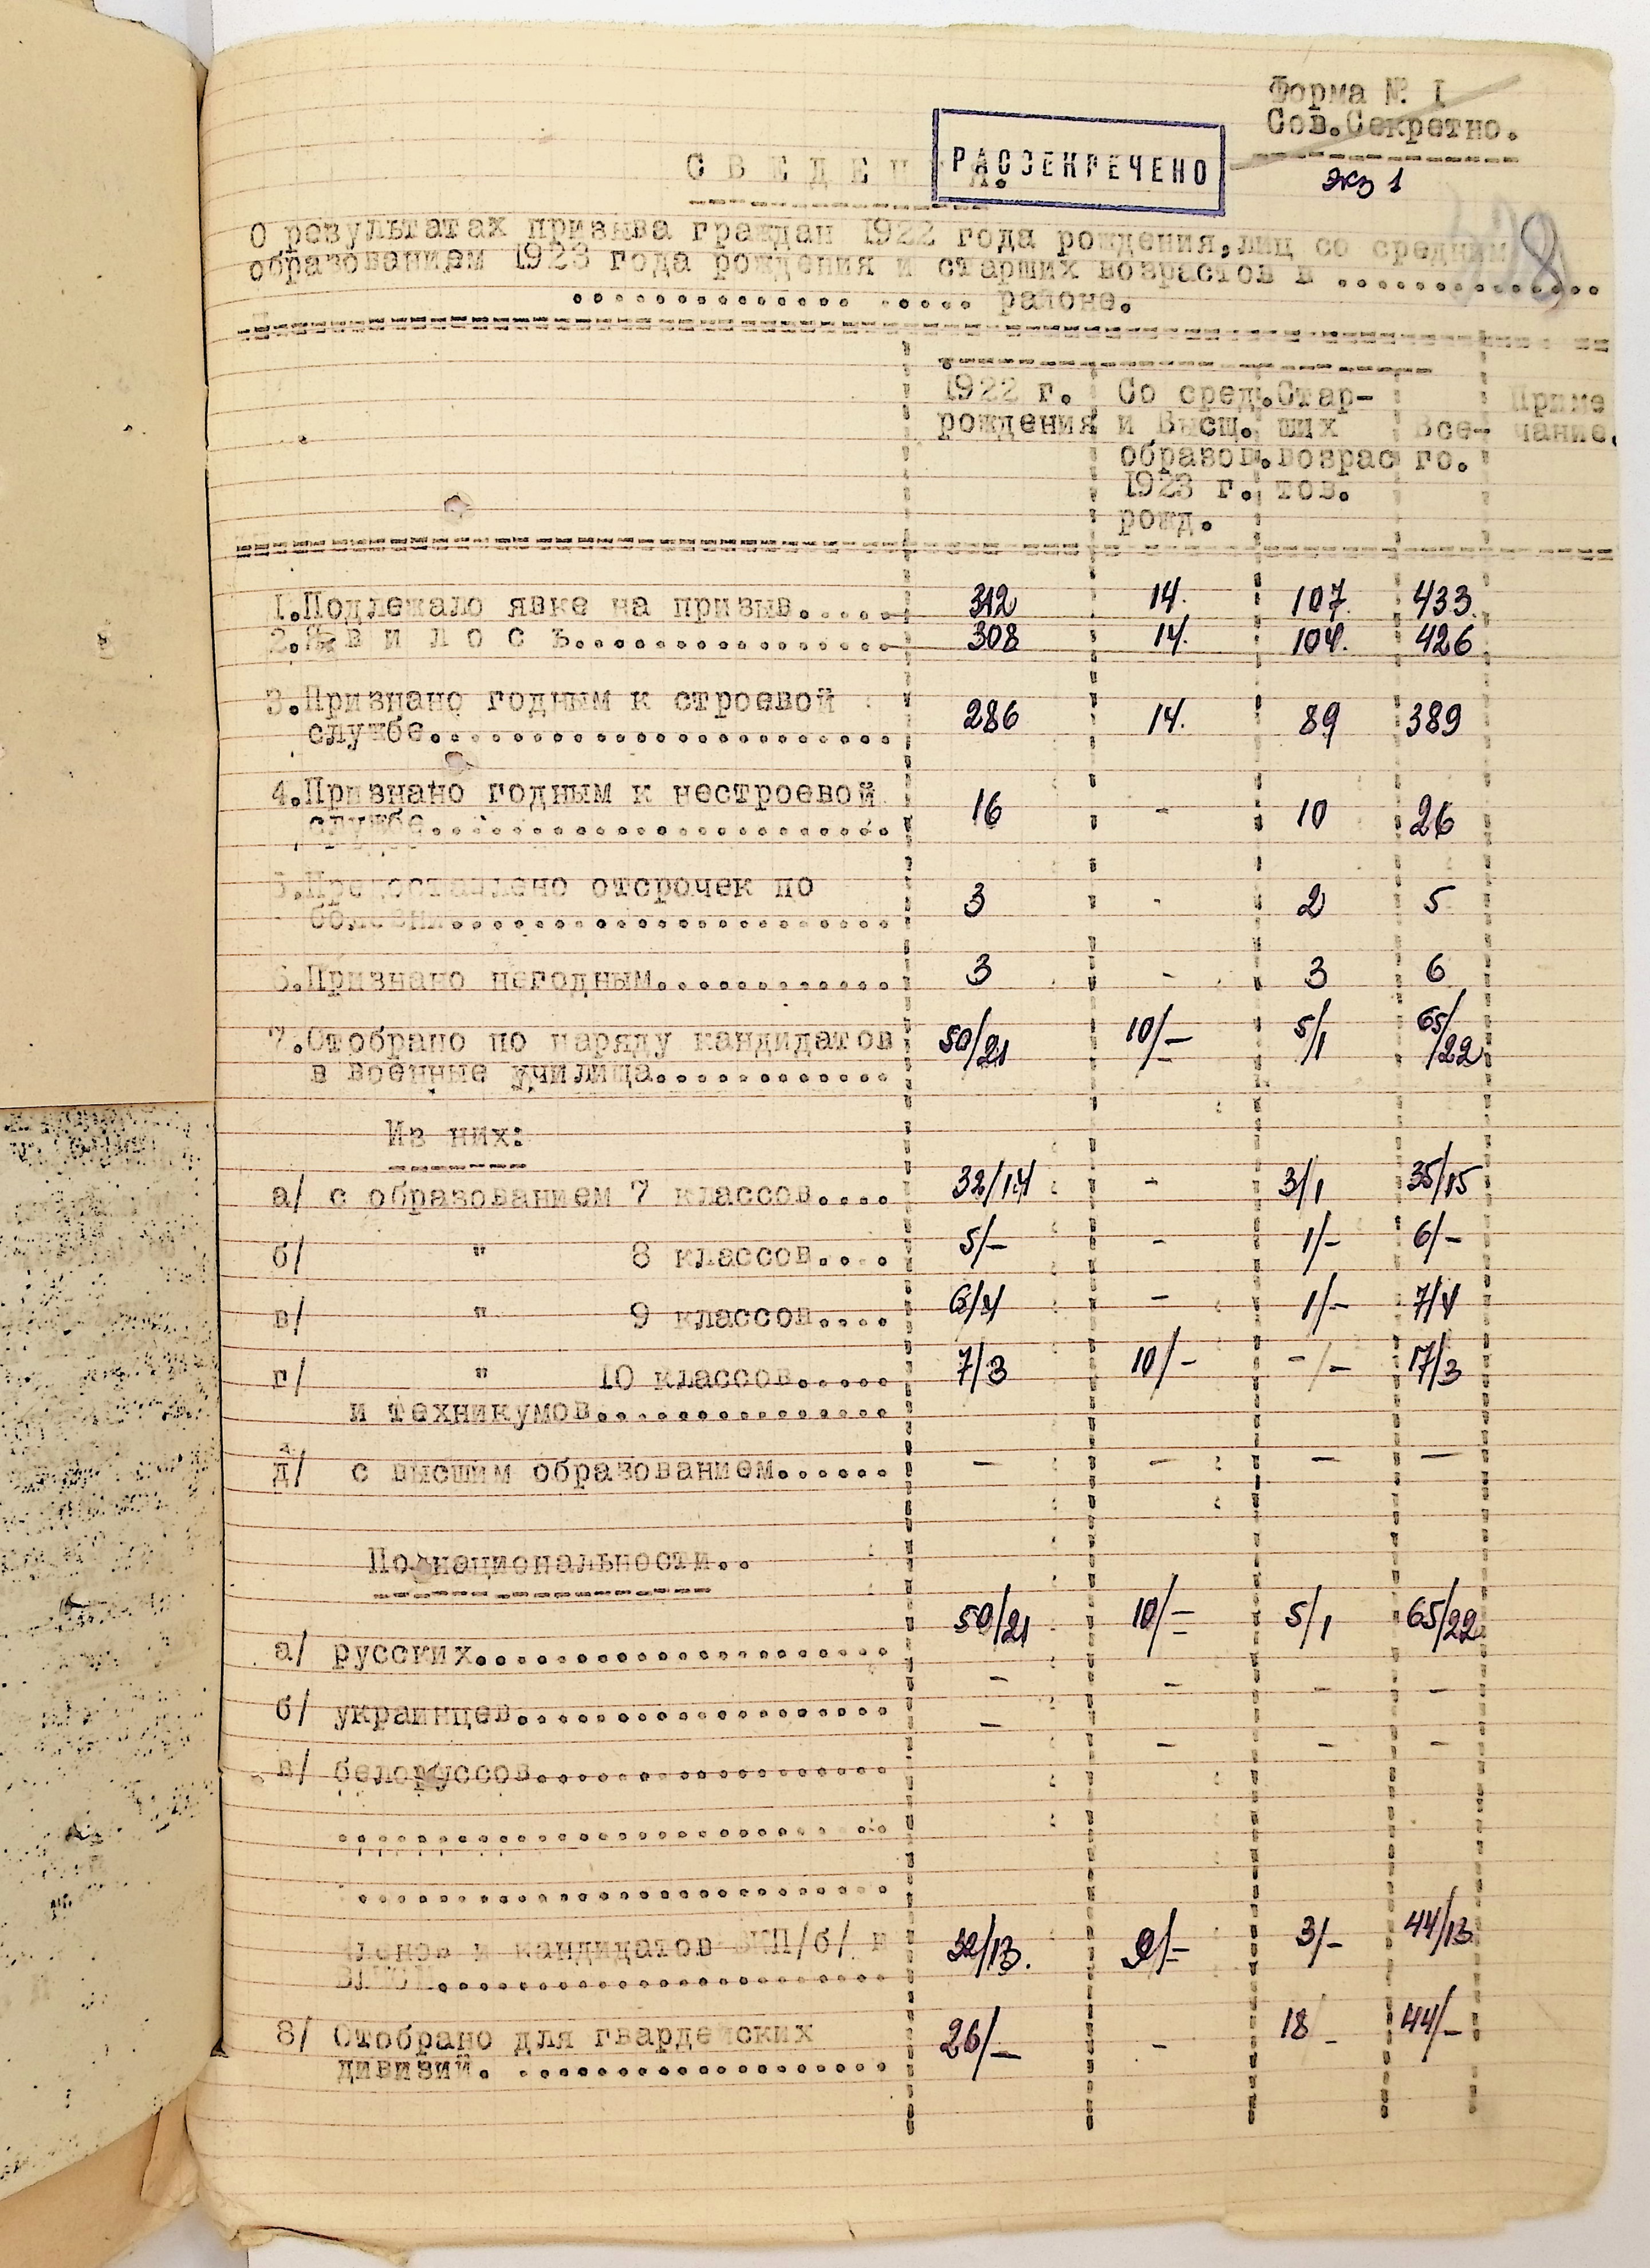 Форма № I
Сов.Секретно.
экз 1
РАССЕКРЕЧЕНО
С В Е Д Е Н
О результатах призыва граждан 1922 года рождения,лиц со средним
образованием 1923 года рождения и старших возрастов в ..............
.............. ..... районе.
1922 г. Со сред. Стар- Приме
рождения и Высш. ших Все- чание.
образов. возрас го.
1923 г. тов.
рожд.
1.Подлежало явке на призыв..... 312 14. 107. 433.
2.Я в и л о с ь................ 308 14. 104. 426
3.Признано годным к строевой
службе....................... 286 14. 89 389
4.Признано годным к нестроевой
службе....................... 16 - 10 26
5.Предоставлено отсрочек по
болезни...................... 3 - 2 5
6.Признано негодным............ 3 - 3 6
7.Отобрано по наряду кандидатов 50/21 10/- 5/1 65/22
в военные училища............
Из них:
а/ с образованием 7 классов.... 32/14 - 3/1 35/15
б/ " 8 классов.... 5/- - 1/- 6/-
в/ " 9 классов.... 6/4 - 1/- 7/4
г/ " 10 классов..... 7/3 10/- -/- 17/3
и техникумов...............
д/ с высшим образованием...... - - - -
По национальности..
а/ русских.................... 50/21 10/- 5/1 65/22
б/ украинцев.................. - - - -
в/ белоруссов................. - - - -
..........................
..........................
Членов и кандидатов ВКП/б/ и 32/13. 9/- 3/- 44/13
ВЛКСМ......................
8/ Отобрано для гвардейских 26/- - 18/- 44/-
дивизий. ..................